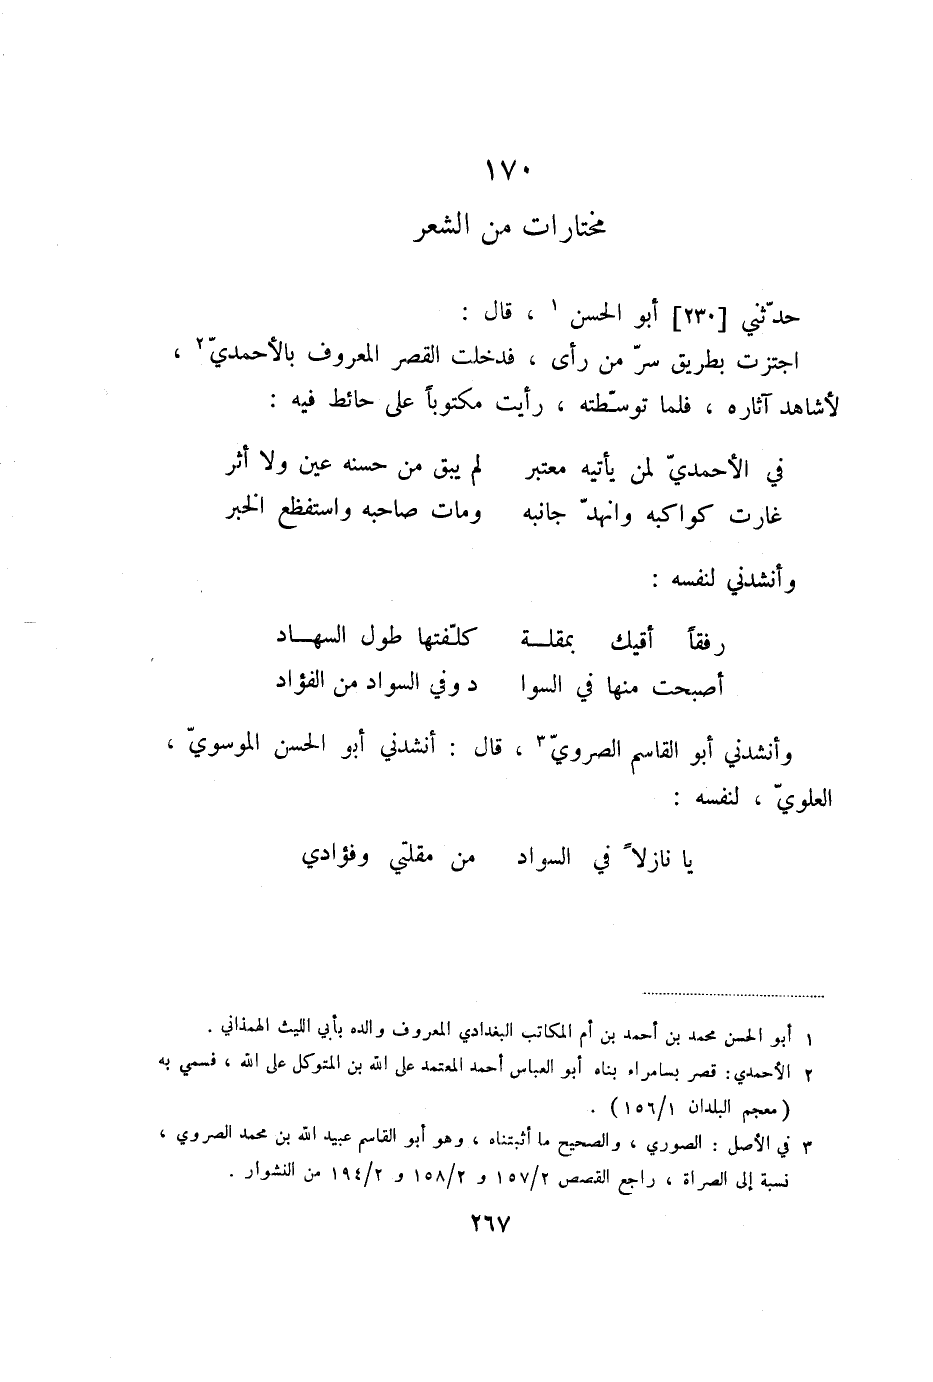 ١٧٠
مختارات من الشعر
حدّثني [٢٣٠] أبو الحسن ١ ، قال :
اجتزت بطريق سرّ من رأى ، فدخلت القصر المعروف بالأحمديّ ٢ ،
لأشاهد آثاره ، فلما توسّطته ، رأيت مكتوباً على حائط فيه :
في الأحمديّ لمن يأتيه معتبر لم يبق من حسنه عين ولا أثر
غارت كواكبه وانهدّ جانبه ومات صاحبه واستفظع الخبر
وأنشدني لنفسه :
رفقاً أقيك بمقلــة كلّفتها طول السهــاد
أصبحت منها في السوا د وفي السواد من الفؤاد
وأنشدني أبو القاسم الصرويّ ٣ ، قال : أنشدني أبو الحسن الموسويّ ،
العلويّ ، لنفسه :
يا نازلاً في السواد من مقلتي وفؤادي
١ أبو الحسن محمد بن أحمد بن أم المكاتب البغدادي المعروف والده بأبي الليث الهمذاني .
٢ الأحمدي : قصر بسامراء بناه أبو العباس أحمد المعتمد على الله بن المتوكل على الله ، فسمي به
(معجم البلدان ١/١٥٦) .
٣ في الأصل : الصوري ، والصحيح ما أثبتناه ، وهو أبو القاسم عبيد الله بن محمد الصروي ،
نسبة إلى الصراة ، راجع القصص ٢/١٥٧ و ٢/١٥٨ و ٢/١٩٤ من النشوار .
٢٦٧